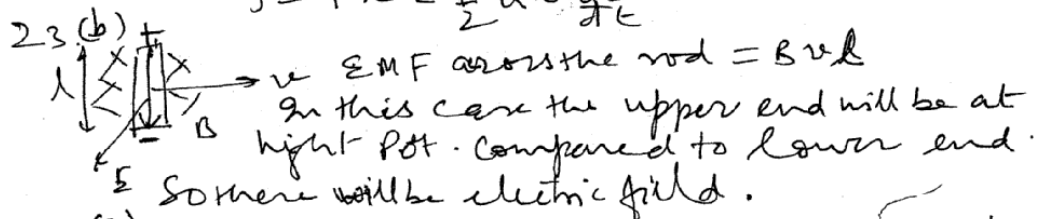 23.(b) + → v EMF across the rod = Bvl
l B In this case the upper end will be at
- hight Pot. Compared to lower end.
E So there will be electric field.